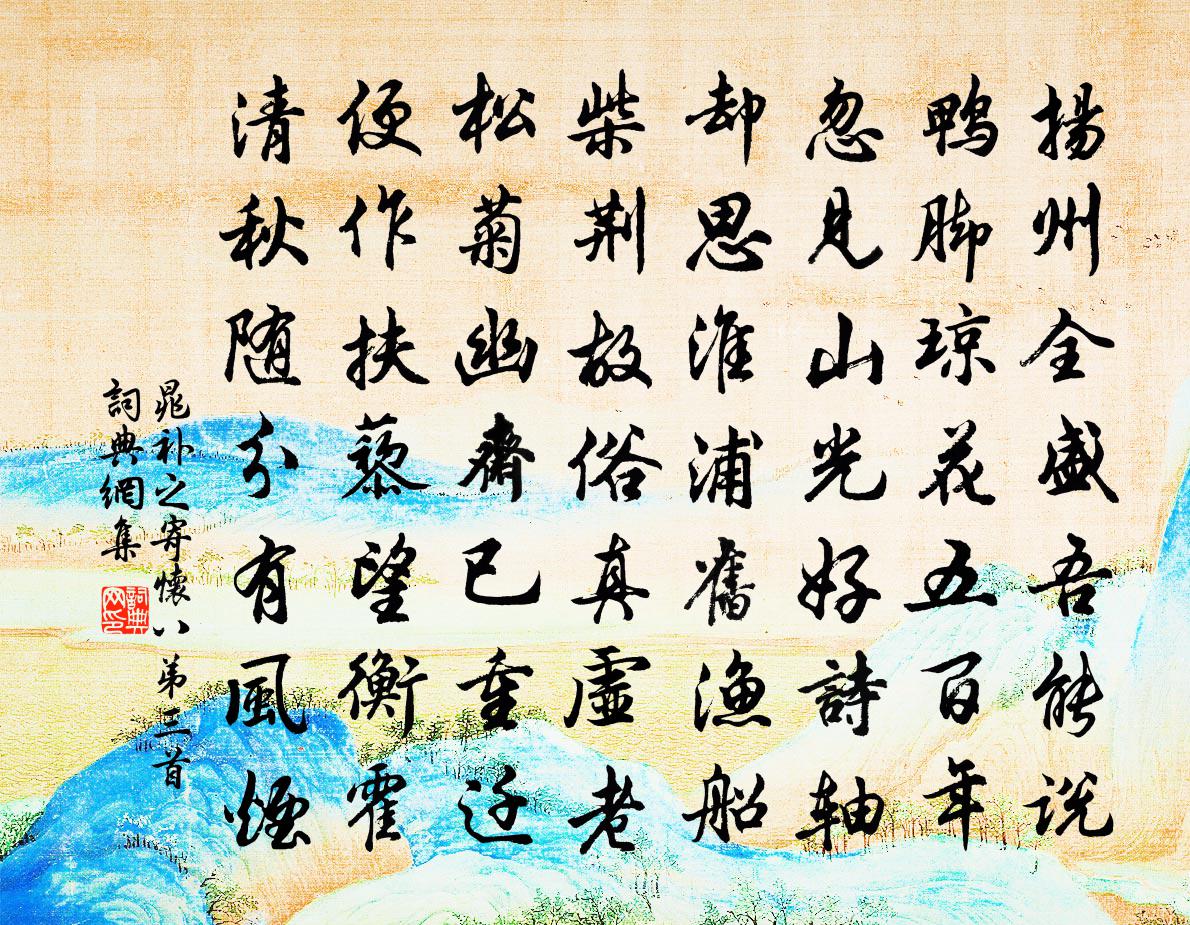 揚州全盛吾能说
鸭脚琼花五百年
忽見山光好詩轴
却思淮浦舊漁船
柴荆故俗真虛老
松菊幽齋已重迁
便作扶藜望衡霍
清秋随分有風煙
晁补之寄懷八弟三首
詞典網集
詞典网印